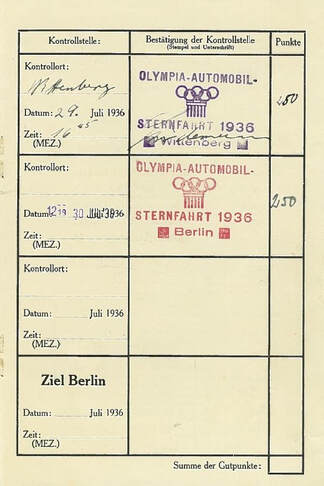 Kontrollstelle: Bestätigung der Kontrollstelle Punkte
(Stempel und Unterschrift)
Kontrollort:
Wittenberg
Datum: 29. Juli 1936
Zeit: 16 45
(MEZ.)
OLYMPIA-AUTOMOBIL-
STERNFAHRT 1936
Wittenberg
250
Kontrollort:
Datum: 30 Juli 1936
Zeit:
(MEZ.)
OLYMPIA-AUTOMOBIL-
STERNFAHRT 1936
Berlin
250
Kontrollort:
Datum: Juli 1936
Zeit:
(MEZ.)
Ziel Berlin
Datum: Juli 1936
Zeit:
(MEZ.)
Summe der Gutpunkte: